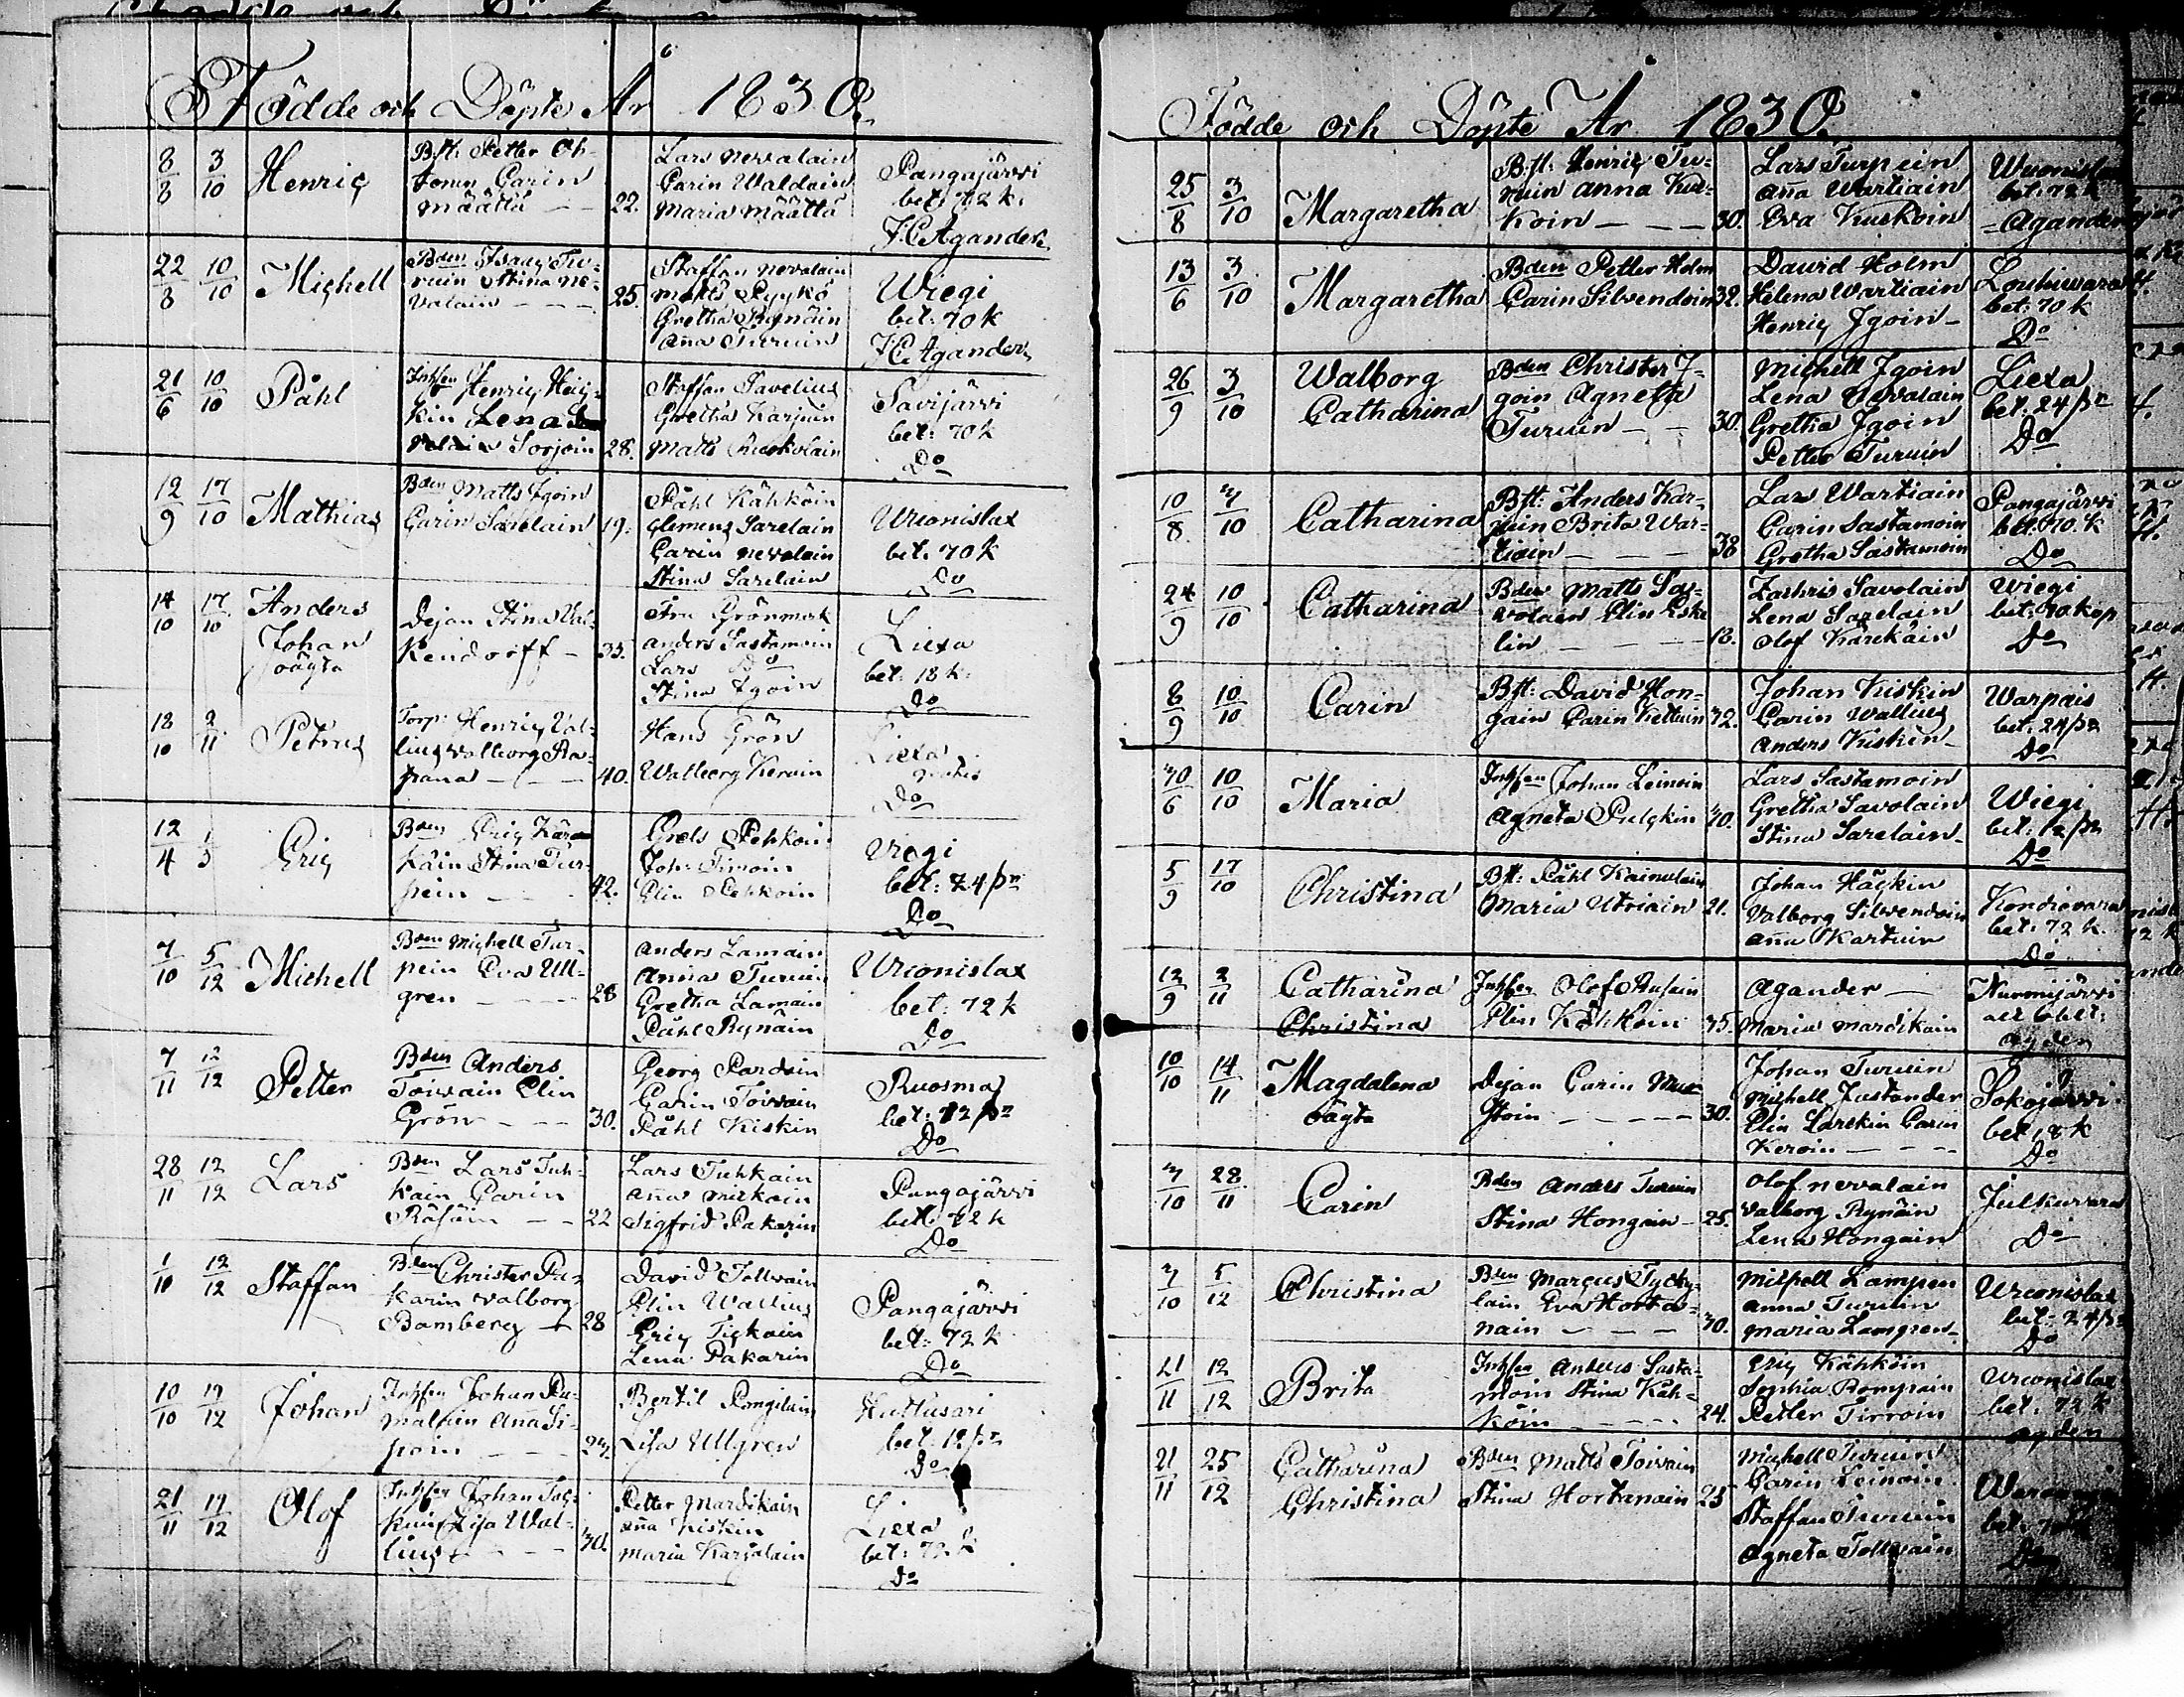 Födde och Döpte År 1830.
8/8 3/10 Henric
Bst: Petter Oh-
tonen Carin
Määttä — 22.
Lars Nevalain
Carin Waldain
Maria Määttä
Pangajärvi
bet: 72 k.
J C Agander
22/8 10/10 Michell
Bden Isaac Tu-
ruin Stina Ne-
valain — 25.
Staffan Nevalain
Matts Pyykö
Gretha Rynäin
Aña Turuin
Wiegi
bet: 70 k
J C Agander
21/6 10/10 Påhl
Inhsen Henric Heic-
kin Lena
Sorjoin 28.
Staffan Pavelius
Gretha Karjuin
Matts
Savijärvi
bet: 70 k
Do
12/9 17/10 Mathias
Bden Matts Igoin
Carin Sarelain 19.
Påhl Kähköin
Clemens Sarelain
Carin Nevalain
Stina Sarelain
Wronislax
bet. 70 k
Do
14/10 17/10 Anders
Johan
oägta
Dejan Stina Val-
kendorff — 35.
Fru Grönmark
Anders Sastamoin
Lars Do
Stina Igoin
Liexa
bet: 18 k.
Do
18/10 2/11 Petrus
Torp: Henric Val-
lius Valborg Pa-
pana — 40.
Hans Grön
Walborg Keroin
Liexa
gratis
Do
12/4 1/5 Eric
Bden Eric Kära-
käin Stina Tur-
pein — 42.
Grels Pehkoin
Joh: Timoin
Elin Pehkoin
Viegi
bet: 24 pn
Do
7/10 5/12 Michell
Bden Michell Tur-
pein Eva Ull-
gren — 28
Anders Lamain
Anna Turuin
Gretha Lamain
Påhl Rynäin
Wronislax
bet: 72 k
Do
7/11 12/12 Petter
Bden Anders
Toivain Elin
Grön — 30.
Georg Pardain
Carin Toivain
Påhl Kiskin
Ruosma
bet: 12 pn
Do
28/11 12/12 Lars
Bden Lars Tuh-
kain Carin
Räsäin — 22
Lars Tuhkain
Aña Mirkain
Sigfrid Pakarin
Pangajärvi
bet. 72 k
Do
1/10 12/12 Staffan
Bden Christer Pa-
karin Valborg
Bamberg — 28
David Tolvain
Elin Wallius
Eric Tickain
Lena Pakarin
Pangajärvi
bet: 72 k
Do
10/10 19/12 Johan
Inhsen Johan Pu-
malain Aña Si-
poin — 27.
Bertil Pomgilain
Lisa Ullgren
Huttusari
bet. 12 pn
Do
21/11 19/12 Olof
Inhsen Johan
Lisa Wal-
lius — 30.
Petter Mardikain
Aña Kiskin
Maria Karjalain
Liexa
bet: 72 k
Do
Födde och Döpte År 1830.
25/8 3/10 Margaretha
Bst: Henric Tu-
ruin Anna Kus-
koin — 30.
Lars Turpein
Aña Wartiain
Eva Kuskoin
Wronislax
bet: 72 k
Agander
13/6 3/10 Margaretha
Bden Petter Holm
Carin Silvendoin 32.
David Holm
Helena Wartiain
Henric Igoin
Loukiwara
bet: 70 k
Do
26/9 3/10 Walborg
Catharina
Bden Christer I-
goin Agneta
Turuin — 30.
Michell Igoin
Lena Nevalain
Gretha Igoin
Petter Turuin
Liexa
bet. 24 pn
Do
10/8 7/10 Catharina
Bst: Anders Kar-
juin Brita War-
tiain — 38
Lars Wartiain
Carin Sastamoin
Gretha Sastamoin
Pangajärvi
bet: 70. k
Do
24/9 10/10 Catharina
Bden Matts Sa-
volain Elin Eske-
lin — 18.
Zachris Savolain
Lena Sarelain
Olof Kärekäin
Wiegi
bet: 70 kop
Do
8/9 10/10 Carin
Bst: David Hon-
gain Carin Kettuin 32.
Johan Kiskin
Carin Wallius
Anders Kiskin
Warpais
bet. 24 pn
Do
30/6 10/10 Maria
Inhsen Johan Leinoin
Agneta Pulckin 40.
Lars Sastamoin
Gretha Savolain
Stina Sarelain
Wiegi
bet: 12 pn
Do
5/9 17/10 Christina
Bst: Påhl Kainulain
Maria Utriain 21.
Johan Häckin
Valborg Silvendoin
Aña Kartuin
Kondiovara
bet: 72 k.
Do
12/9 2/11 Catharina
Christina
Inhsen Olof
Elin Kähköin 35.
Agander
Maria Mardikain
Nurmijärvi
10/10 14/11 Magdalena
oägta
Dejan Carin Mus-
toin — 30.
Johan Turuin
Michell Zustander
Elin Larekin Carin
Keroin
Sokojärvi
bet. 18 k
Do
7/10 28/11 Carin
Bden Anders Turuin
Stina Hongain — 25.
Olof Nevalain
Valborg Rynäin
Lena Hongain
Julkuvara
Do
7/10 5/12 Christina
Bden Marcus Tycky-
lain Eva Horta-
nain — 30.
Michell Lampen
Anna Turuin
Maria Lamgren
Wronislax
bet: 24 pn
Do
21/11 12/12 Brita
Inhsen Anders Sasta-
moin Stina Käh-
köin — 24.
Eric Kähköin
Sophia Rompain
Petter Tirroin
Wronislax
bet. 72 k
21/11 25/12 Catharina
Christina
Bden Matts Toivain
Stina Hortanain 25
Michell Turuin
Carin Leinoin
Staffan Turuin
Agneta Tollvain
bet.
Do